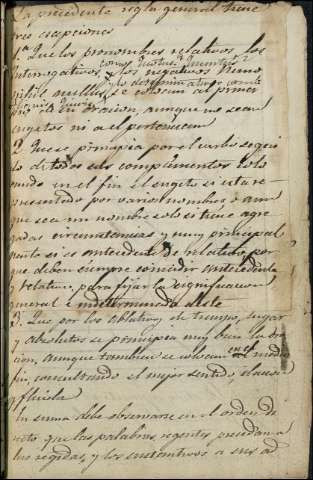 La precedente regla general tiene
tres excepciones
1.ª Que los pronombres relativos, los
interrogativos, como
y los negativos Nemo
nihil nullus, se colocan al primer
de la oracion, aunque no sean
sugetos ni a el pertenezcan
2. Que se principia por el verbo segui
do de todos sus complementos colo
cando en el fin el sugeto si está re
presentado por varios nombres, ó aun
que sea un nombre solo si tiene agre
gadas circunstancias y muy principal
mente si es antecedente de relativo por
que deben siempre coincidir antecedente
y relativo, para fijar la significacion
general é indeterminada de
3. Que por los ablativos de tiempo, lugar
y absolutos se principia muy bien la ora
cion, aunque tambien se colocan en el medio
fin, consultando el mejor sentido, clausula
y fluida
En suma debe observarse en el orden di
recto que las palabras regentes precedan a
las regidas, y los sustantivos a sus ad